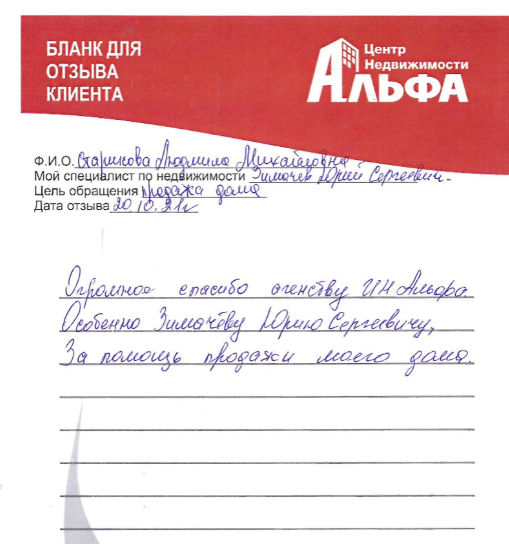 БЛАНК ДЛЯ
ОТЗЫВА
КЛИЕНТА
Центр
Недвижимости
АЛЬФА
Ф.И.О. Старикова Людмила Михайловна
Мой специалист по недвижимости Зимачёв Юрий Сергеевич.
Цель обращения продажа дома
Дата отзыва 20.10.21г
Огромное спасибо агенству ЦН Альфа.
Особенно Зимачёву Юрию Сергеевичу,
За помощь продажи моего дома.